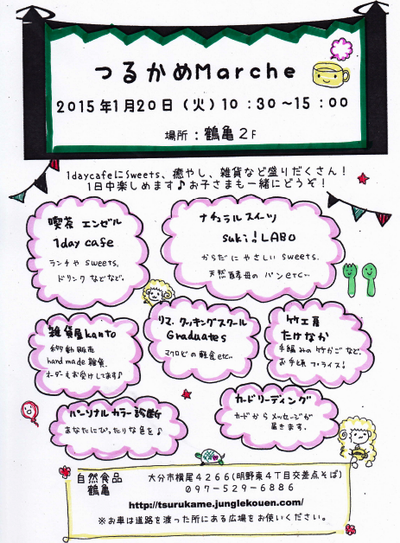 つるかめMarche
2015年1月20日（火）10：30～15：00
場所：鶴亀2F
1daycafeにSweets、癒やし、雑貨など盛りだくさん！
1日中楽しめます♪お子さまも一緒にどうぞ！
喫茶 エンゼル
1day cafe
ランチや sweets.
ドリンク などなど。
ナチュラルスイーツ
suki！LABO
からだに やさしい sweets.
天然酵母の パン etc〜
雑貨屋kanto
移動販売
hand made 雑貨.
オーダーもお受けしてます♪
リマ.クッキングスクール
Graduates
マクロビの 軽食 etc..
竹工房
たけなか
手編みの竹かごなど。
お手頃プライス！
パーソナル カラー 診断
あなたにぴったりな色を♪
カードリーディング
カードから メッセージが
届きます。
自然食品
鶴亀
大分市横尾4266(明野東4丁目交差点そば)
097-529-6886
http://tsurukame.junglekouen.com/
※お車は道路を渡った所にある広場をお使いください。